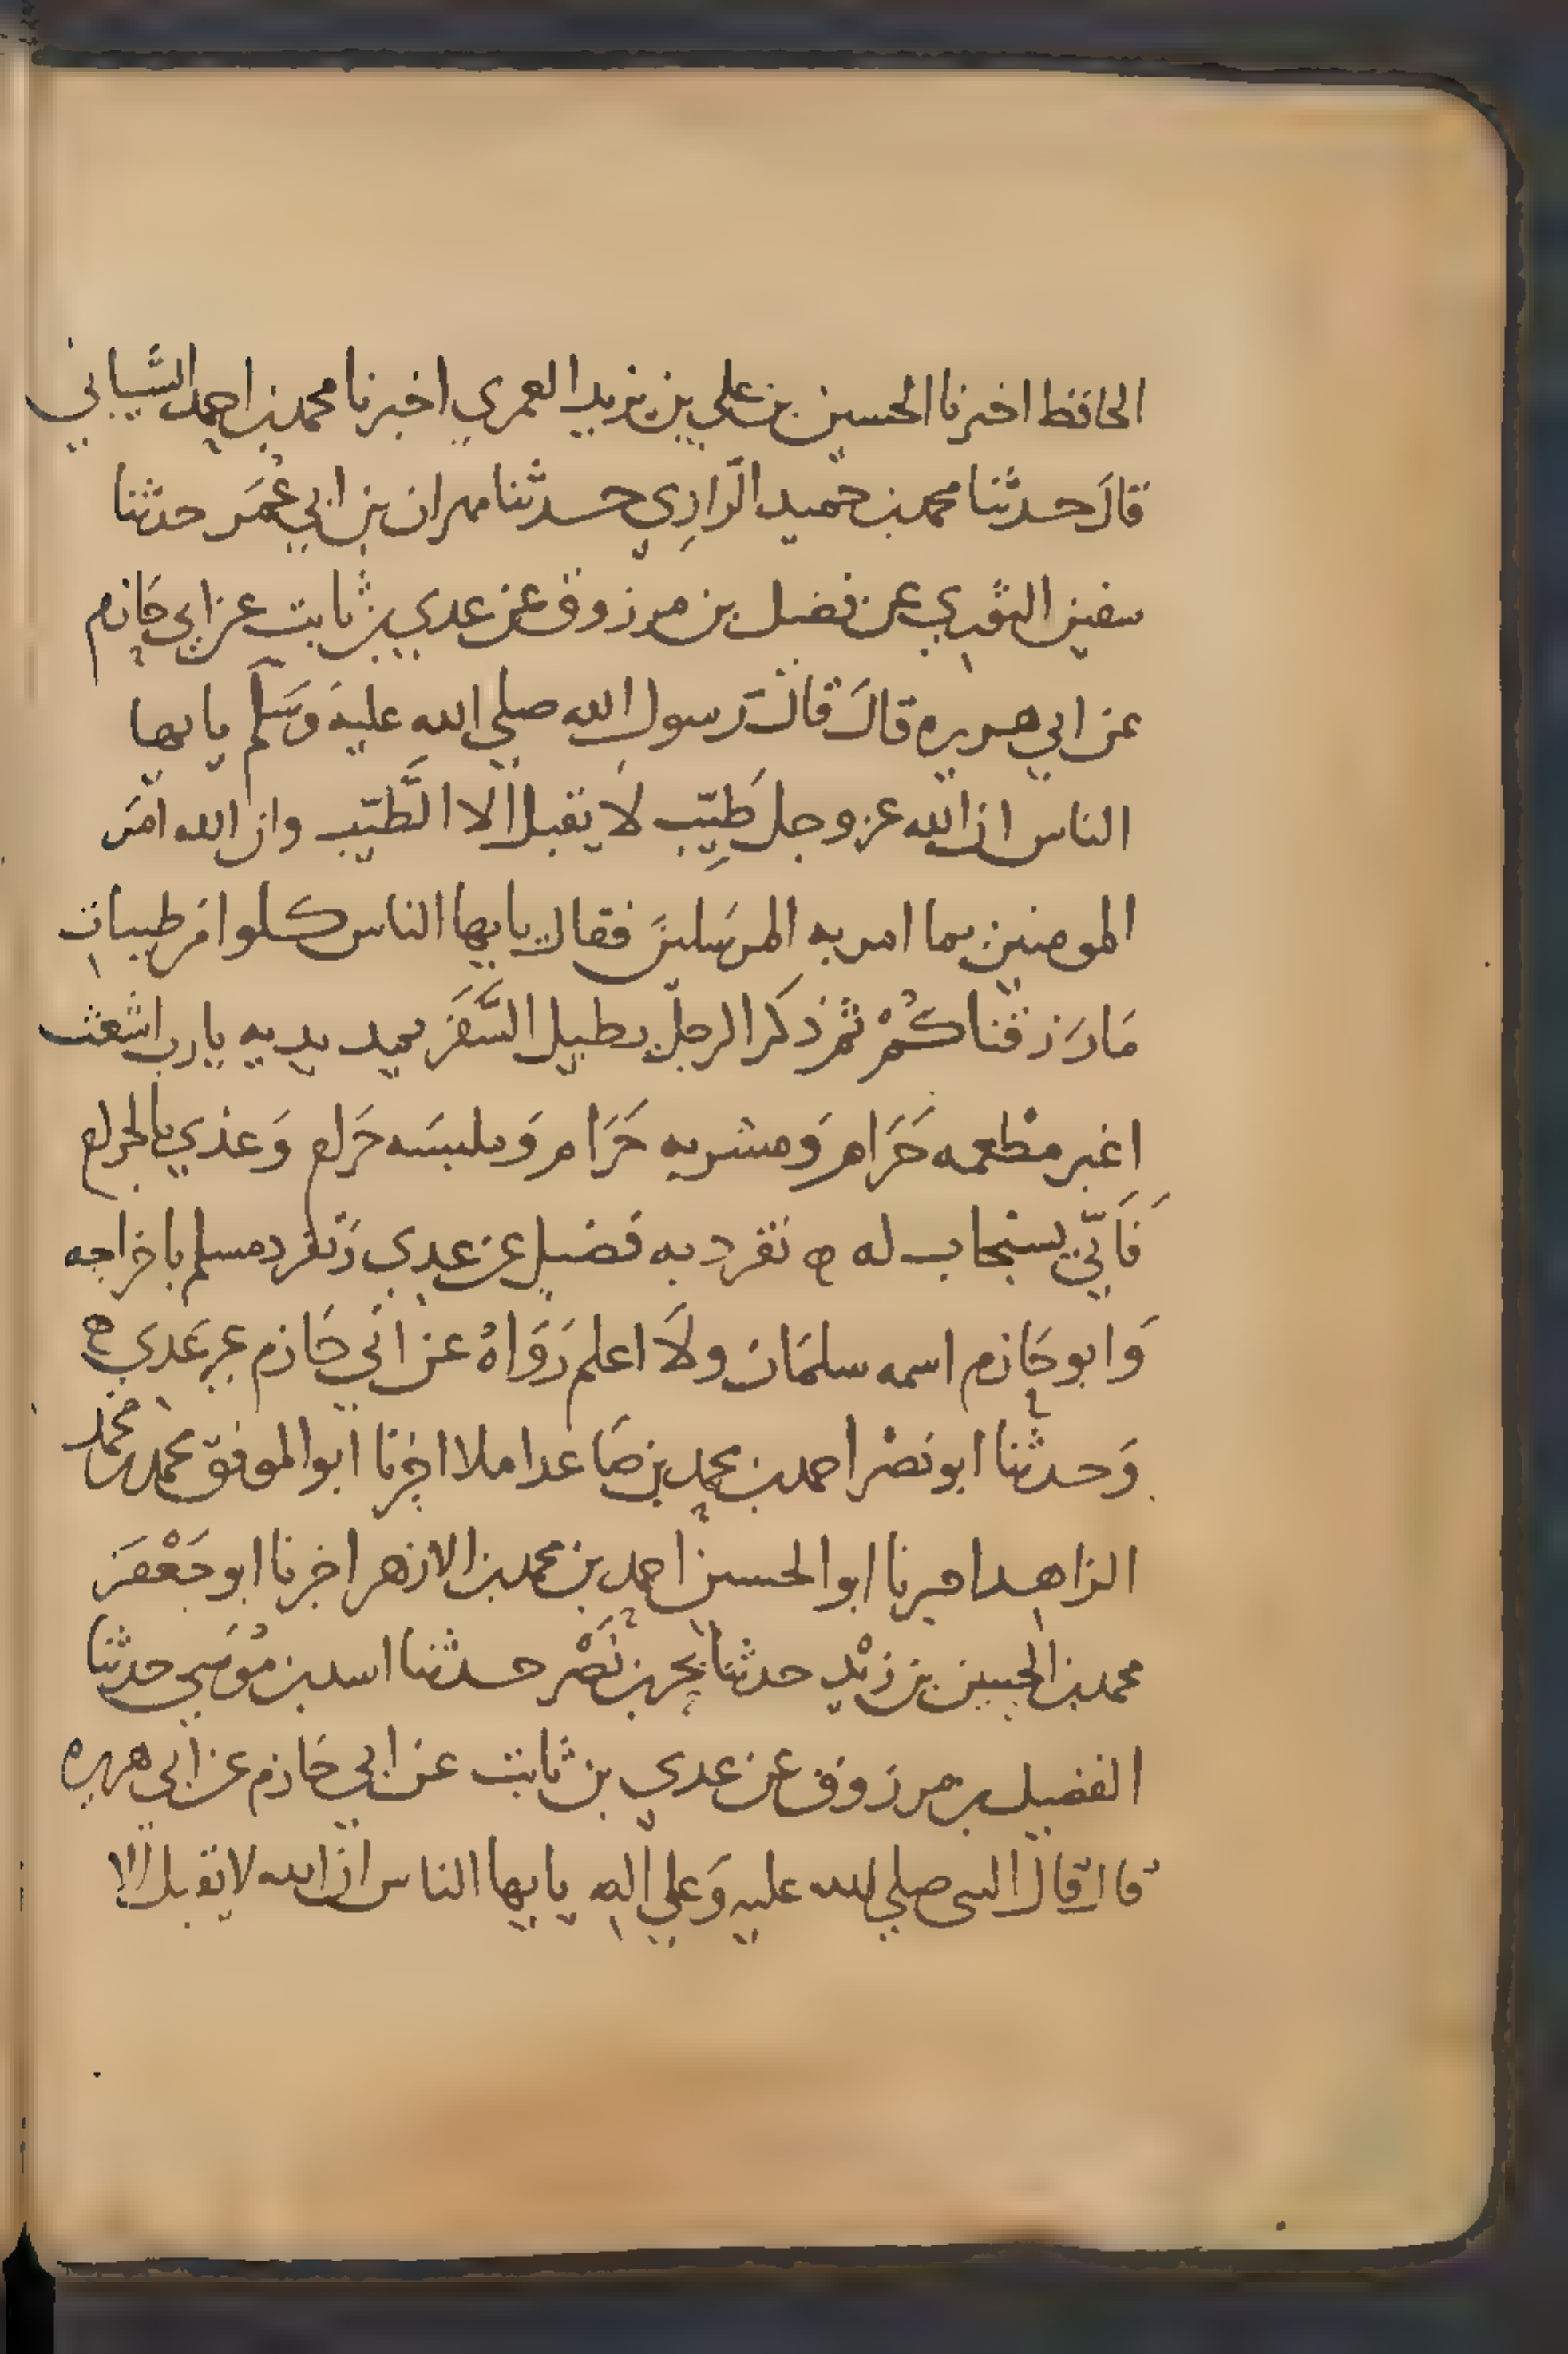 الحافظ اخبرنا الحسين بن علي بن يزيد العمري اخبرنا محمد بن احمد الشيباني
قالَ حدثنا محمد بن حميد الرازي حدثنا مهران بن ابي عُمَر حدثنا
سفين الثوري عن فضيل بن مرزوق عن عدي بن ثابت عن ابي حَازم
عن ابي هريره قالَ قالَ رسول الله صلي الله عليه وَسَلم يايها
الناس ان الله عز وجل طَيّب لَا يقبل الا الطَّيّب وان الله امَر
المومنين بما امر به المرسَلينَ فقال يايها الناس كلوا من طيبات
مَا رَزقناكُمْ ثم ذكَر الرجل يطيل السَّفَرَ يمد يديه يا رب اشعث
اغبر مطْعمه حَرَام وَمشربه حَرَام وَملبسَه حَرام وَغذي بالحرام
فَاَنّي يستجاب له ه تفرد به فضيل عن عدي وَتفرد مسلم باخراجه
وَابو حَازم اسمه سلمَان ولَا اعلم رَوَاهُ عن ابي حَازم غير عَدي ه
وَحدثنا ابو نصْر احمد بن محمد بن صَاعد املا اخبرنا ابو الموفق محمد بن محمد
الزاهد اخبرنا ابو الحسين احمد بن محمد بن الازهر اخبرنا ابو جَعْفَر
محمد بن الحسين بن زيْد حدثنا بحر بن نَصْر حدثنا اسد بن موُسَي حدثنا
الفضيل بن مرزوق عن عدي بن ثابت عن ابي حَازم عن ابي هريره
قال قال النبي صلي الله عليه وَعلي اله يايها الناس ان الله لا يقبل الا